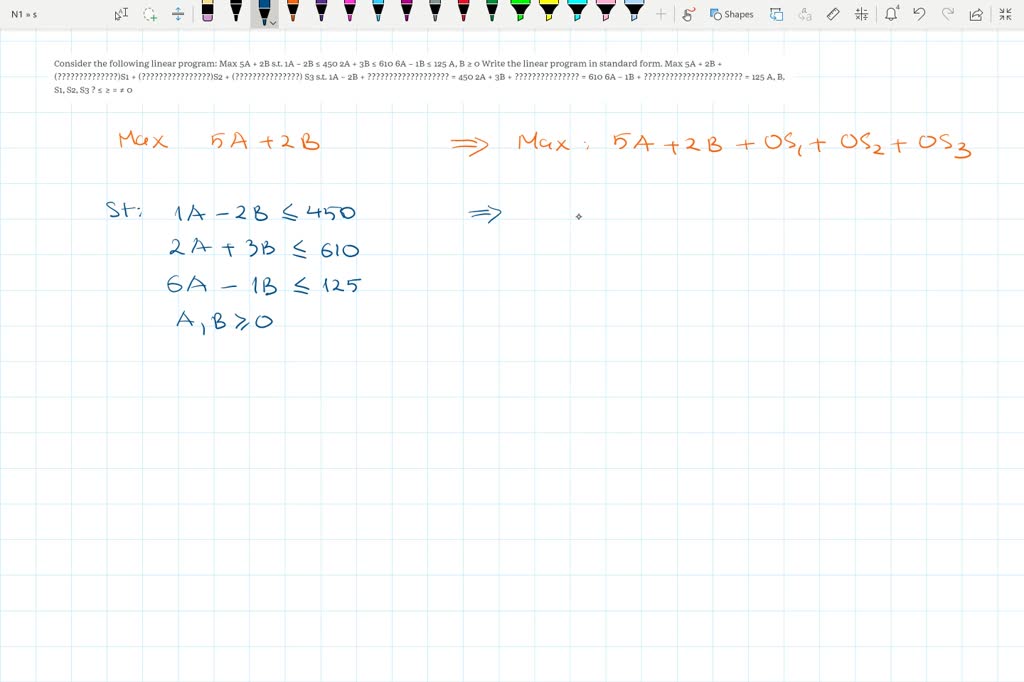 N1 » s
Shapes
4
Consider the following linear program: Max 5A + 2B s.t. 1A – 2B ≤ 450 2A + 3B ≤ 610 6A – 1B ≤ 125 A, B ≥ 0 Write the linear program in standard form. Max 5A + 2B +
(??????????????)S1 + (????????????????)S2 + (???????????????) S3 s.t. 1A – 2B + ??????????????????? = 450 2A + 3B + ??????????????? = 610 6A – 1B + ??????????????????????? = 125 A, B,
S1, S2, S3 ? ≤ ≥ = ≠ 0
Max 5A + 2B ⇒ Max : 5A + 2B + 0S₁ + 0S₂ + 0S₃
St: 1A - 2B ≤ 450 ⇒
2A + 3B ≤ 610
6A - 1B ≤ 125
A, B ≥ 0